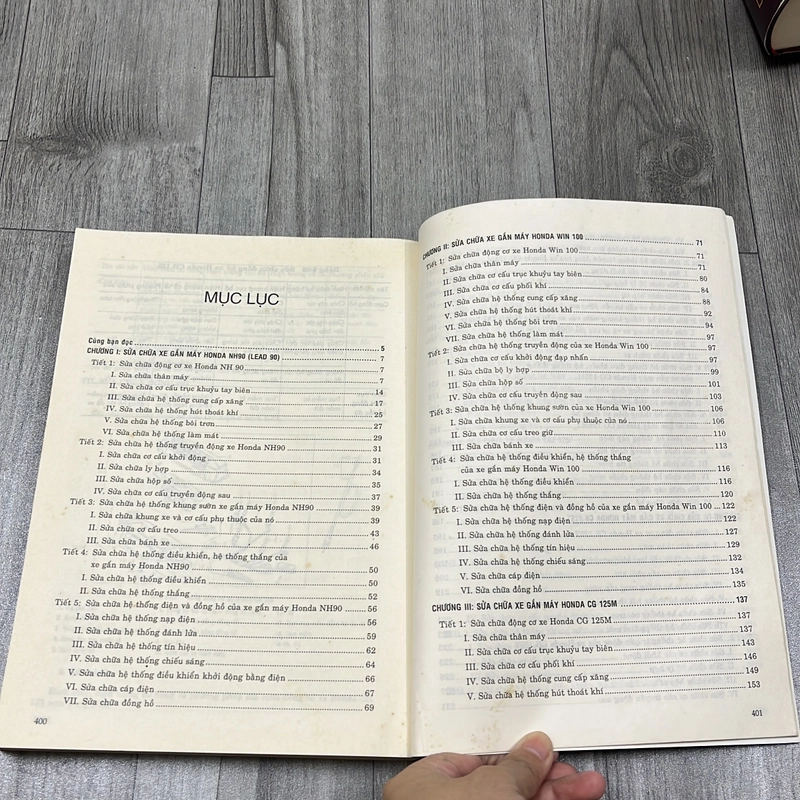 MỤC LỤC
Cùng bạn đọc 5
CHƯƠNG I: SỬA CHỮA XE GẮN MÁY HONDA NH90 (LEAD 90) 7
Tiết 1: Sửa chữa động cơ xe Honda NH 90 7
I. Sửa chữa thân máy 7
II. Sửa chữa cơ cấu trục khuỷu tay biên 14
III. Sửa chữa hệ thống cung cấp xăng 17
IV. Sửa chữa hệ thống hút thoát khí 25
V. Sửa chữa hệ thống bôi trơn 27
VI. Sửa chữa hệ thống làm mát 29
Tiết 2: Sửa chữa hệ thống truyền động xe Honda NH90 31
I. Sửa chữa cơ cấu khởi động 31
II. Sửa chữa ly hợp 34
III. Sửa chữa hộp số 35
IV. Sửa chữa cơ cấu truyền động sau 37
Tiết 3: Sửa chữa hệ thống khung sườn xe gắn máy Honda NH90 39
I. Sửa chữa khung xe và cơ cấu phụ thuộc của nó 39
II. Sửa chữa cơ cấu treo 43
III. Sửa chữa bánh xe 46
Tiết 4: Sửa chữa hệ thống điều khiển, hệ thống thắng của
xe gắn máy Honda NH90 50
I. Sửa chữa hệ thống điều khiển 50
II. Sửa chữa hệ thống thắng 52
Tiết 5: Sửa chữa hệ thống điện và đồng hồ của xe gắn máy Honda NH90 56
I. Sửa chữa hệ thống nạp điện 56
II. Sửa chữa hệ thống đánh lửa 59
III. Sửa chữa hệ thống tín hiệu 62
IV. Sửa chữa hệ thống chiếu sáng 64
V. Sửa chữa hệ thống điều khiển khởi động bằng điện 66
VI. Sửa chữa cáp điện 67
VII. Sửa chữa đồng hồ 69
400
CHƯƠNG II: SỬA CHỮA XE GẮN MÁY HONDA WIN 100 71
Tiết 1: Sửa chữa động cơ xe Honda Win 100 71
I. Sửa chữa thân máy 71
II. Sửa chữa cơ cấu trục khuỷu tay biên 80
III. Sửa chữa cơ cấu phối khí 84
IV. Sửa chữa hệ thống cung cấp xăng 88
V. Sửa chữa hệ thống hút thoát khí 92
VI. Sửa chữa hệ thống bôi trơn 94
VII. Sửa chữa hệ thống làm mát 97
Tiết 2: Sửa chữa hệ thống truyền động của xe Honda Win 100 97
I. Sửa chữa cơ cấu khởi động đạp nhấn 97
II. Sửa chữa bộ ly hợp 99
III. Sửa chữa hộp số 101
IV. Sửa chữa cơ cấu truyền động sau 103
Tiết 3: Sửa chữa hệ thống khung sườn của xe Honda Win 100 106
I. Sửa chữa khung xe và cơ cấu phụ thuộc của nó 106
II. Sửa chữa cơ cấu treo giữ 110
III. Sửa chữa bánh xe 113
Tiết 4: Sửa chữa hệ thống điều khiển, hệ thống thắng
của xe gắn máy Honda Win 100 116
I. Sửa chữa hệ thống điều khiển 116
II. Sửa chữa hệ thống thắng 120
Tiết 5: Sửa chữa hệ thống điện và đồng hồ của xe gắn máy Honda Win 100 122
I. Sửa chữa hệ thống nạp điện 122
II. Sửa chữa hệ thống đánh lửa 127
III. Sửa chữa hệ thống tín hiệu 129
IV. Sửa chữa hệ thống chiếu sáng 132
V. Sửa chữa cáp điện 134
VI. Sửa chữa đồng hồ 135
CHƯƠNG III: SỬA CHỮA XE GẮN MÁY HONDA CG 125M 137
Tiết 1: Sửa chữa động cơ xe Honda CG 125M 137
I. Sửa chữa thân máy 137
II. Sửa chữa cơ cấu trục khuỷu tay biên 143
III. Sửa chữa cơ cấu phối khí 146
IV. Sửa chữa hệ thống cung cấp xăng 149
V. Sửa chữa hệ thống hút thoát khí 153
401